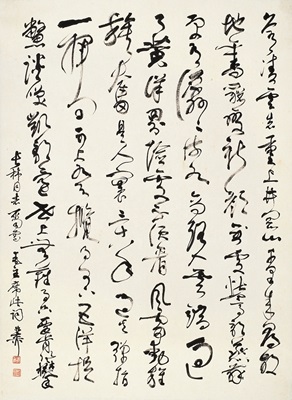 久有凌雲志重上井岡山千里來尋故
地舊貌變新顏到處鶯歌燕舞
更有潺潺流水高路入雲端過
了黃洋界險處不須看風雷動旌
旗奮是人寰三十八年過去彈指
一揮間可上九天攬月可下五洋捉
鱉談笑凱歌還世上無難事只要肯登攀
長林同志 毛主席詞